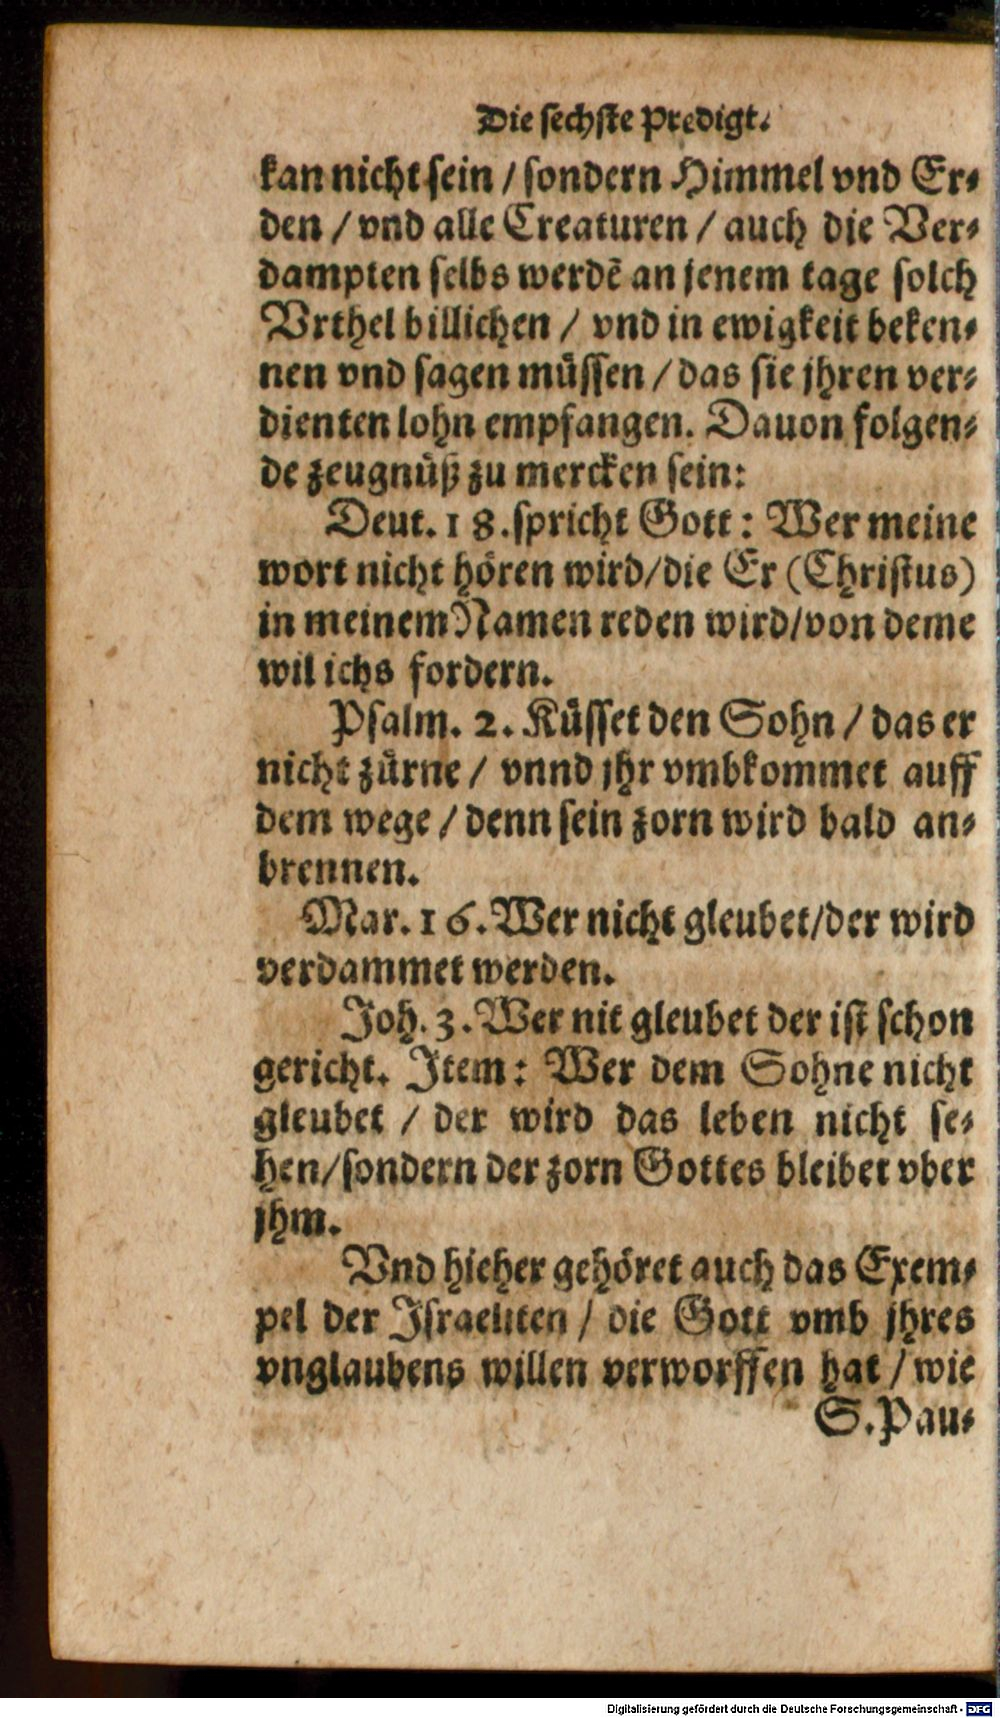 Die sechste Predigt.
kan nicht sein / sondern Himmel vnd Er-
den / vnd alle Creaturen / auch die Ver-
dampten selbs werdē an jenem tage solch
Vrthel billichen / vnd in ewigkeit beken-
nen vnd sagen müssen / das sie jhren ver-
dienten lohn empfangen. Dauon folgen-
de zeugnüß zu mercken sein:
Deut. 18. spricht Gott: Wer meine
wort nicht hören wird/die Er (Christus)
in meinem Namen reden wird/von deme
wil ichs fordern.
Psalm. 2. Küsset den Sohn / das er
nicht zürne / vnnd jhr vmbkommet auff
dem wege / denn sein zorn wird bald an-
brennen.
Mar. 16. Wer nicht gleubet/der wird
verdammet werden.
Joh. 3. Wer nit gleubet der ist schon
gericht. Item: Wer dem Sohne nicht
gleubet / der wird das leben nicht se-
hen/sondern der zorn Gottes bleibet vber
jhm.
Vnd hieher gehöret auch das Exem-
pel der Israeliten / die Gott vmb jhres
vnglaubens willen verworffen hat / wie
S. Pau-
Digitalisierung gefördert durch die Deutsche Forschungsgemeinschaft - DFG